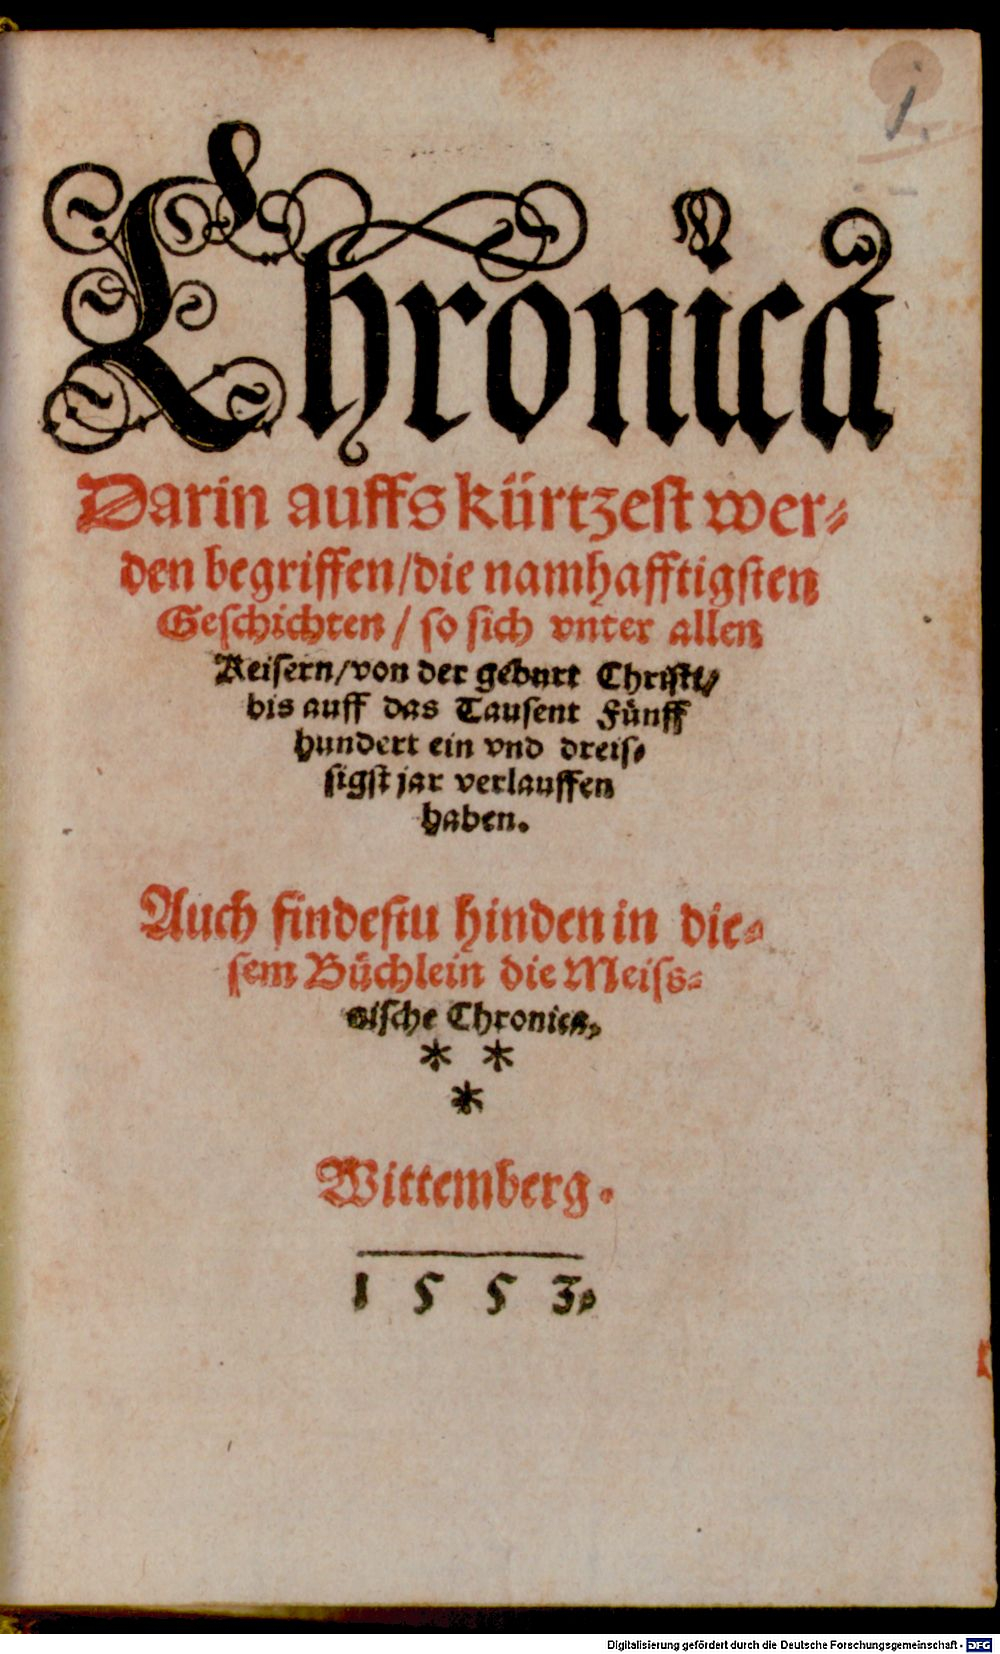 j.
Chronica
Darin auffs kürtzest wer⸗
den begriffen/die namhafftigsten
Geschichten / so sich vnter allen
Keisern/von der geburt Christi/
bis auff das Tausent Fünff
hundert ein vnd dreis⸗
sigst jar verlauffen
haben.
Auch findestu hinden in die⸗
sem Büchlein die Meiss⸗
nische Chronica.
* *
*
Wittemberg.
1553.
Digitalisierung gefördert durch die Deutsche Forschungsgemeinschaft - DFG